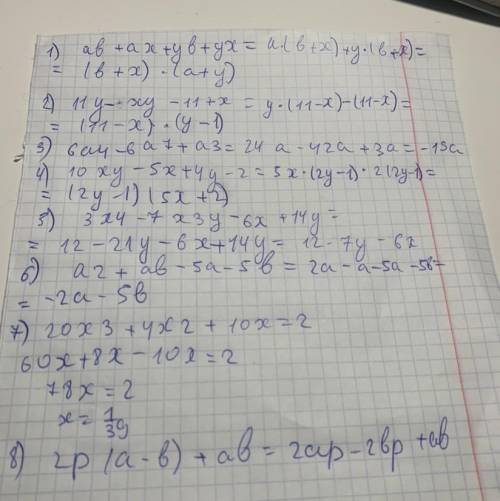 1) ав + ах + ув + ух = а·(в+х) + у·(в+х) =
= (в+х)·(а+у)
2) 11у - ху - 11 + х = у·(11-х) - (11-х) =
= (11-х)·(у-1)
3) 6а4 - 6а7 + а3 = 24а - 42а + 3а = -15а
4) 10ху - 5х + 4у - 2 = 5х·(2у-1)·2(2у-1) =
= (2у-1)(5х+2)
5) 3х4 - 7х3у - 6х + 14у =
= 12 - 21у - 6х + 14у = 12 - 7у - 6х
6) а2 + ав - 5а - 5в = 2а - а - 5а - 5в =
= -2а - 5в
7) 20х3 + 4х2 + 10х = 2
60х + 8х - 10х = 2
78х = 2
х = 1/39
8) 2р(а-в) + ав = 2ар - 2вр + ав